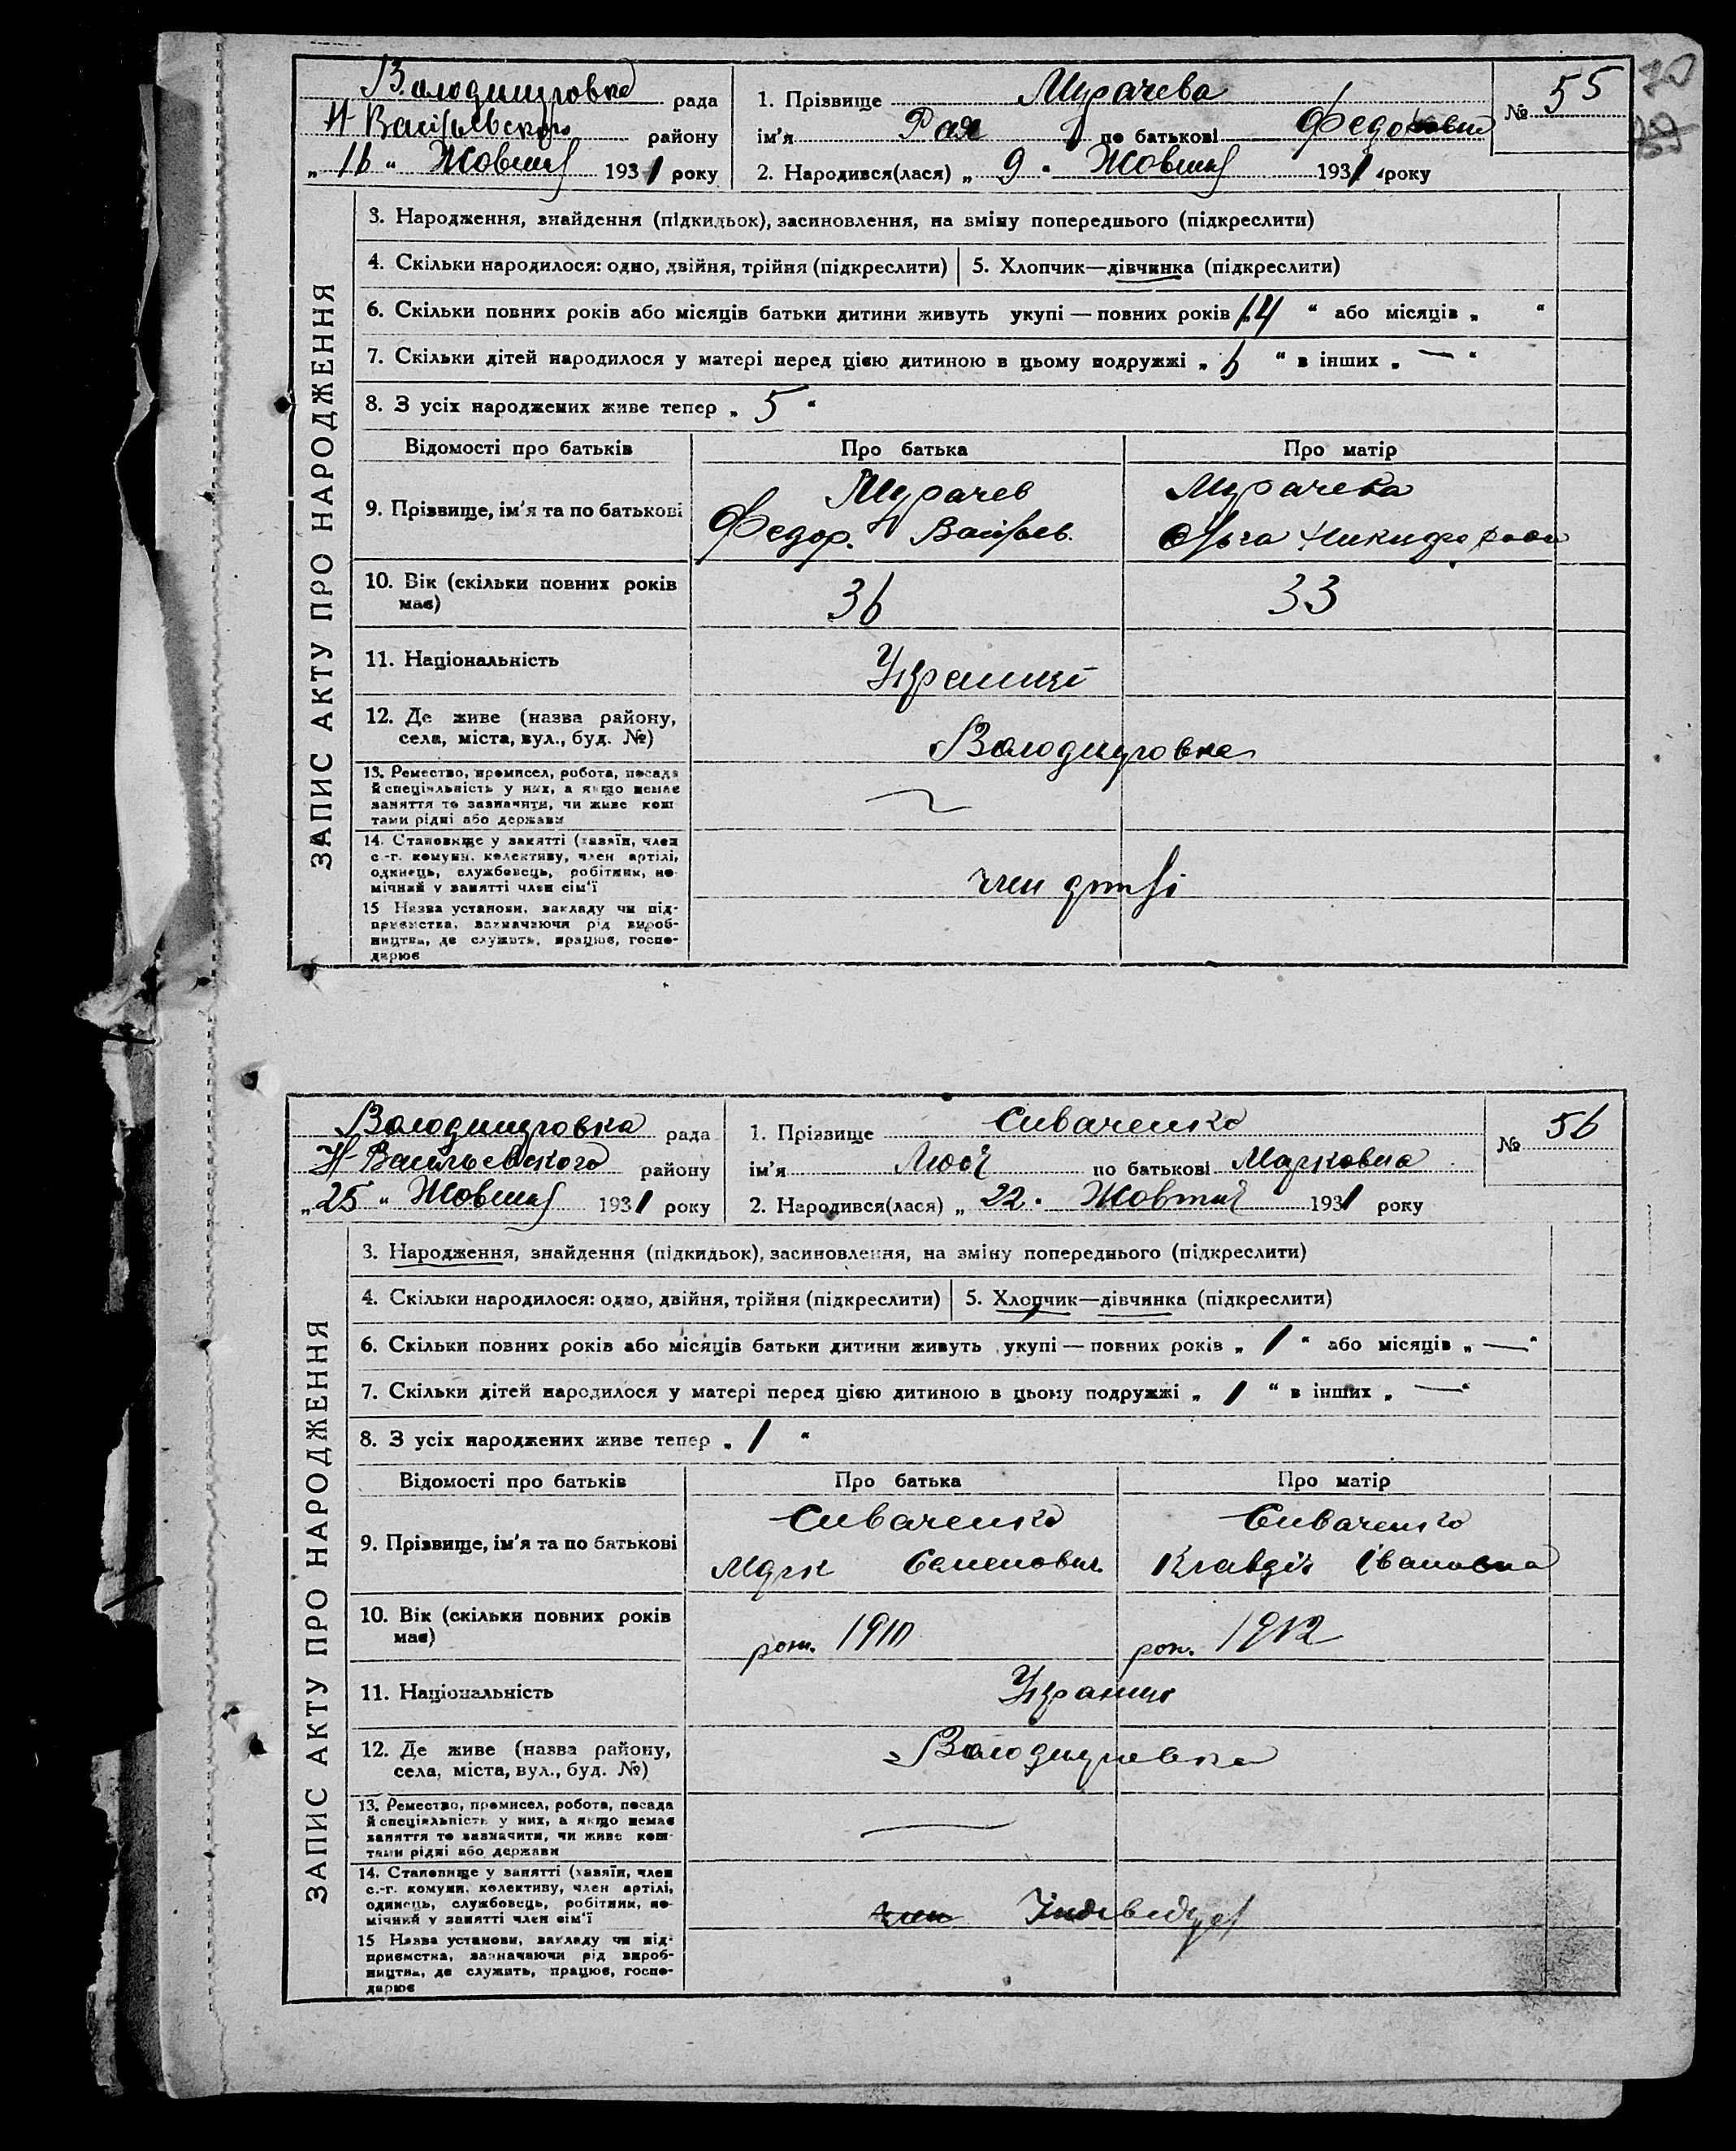 Володимировка рада
Н Васильевского району
„ 16 “ Жовтня 1931 року
1. Прізвище Мурачева
ім’я Рая по батькові Федоровна
2. Народився(лася) „ 9 “ Жовтня 1931 року
№ 55
ЗАПИС АКТУ ПРО НАРОДЖЕННЯ
3. Народження, знайдення (підкидьок), засиновлення, на зміну попереднього (підкреслити)
4. Скільки народилося: одно, двійня, трійня (підкреслити) 5. Хлопчик—дівчинка (підкреслити)
6. Скільки повних років або місяців батьки дитини живуть укупі — повних років 14 “ або місяців „ “
7. Скільки дітей народилося у матері перед цією дитиною в цьому подружжі „ 6 “ в інших „ — “
8. З усіх народжених живе тепер „ 5 “
Відомості про батьків Про батька Про матір
9. Прізвище, ім’я та по батькові
Мурачев
Федор. Васильев.
Мурачева
Ольга Никифоровн
10. Вік (скільки повних років має) 36 33
11. Національність Українці
12. Де живе (назва району,
села, міста, вул., буд. №) Володимировка
13. Ремество, промисел, робота, посада
й спеціяльність у них, а якщо немає
заняття то зазначити, чи живе кош
тами рідні або держави
14. Становище у занятті (хазяїн, член
с.-г. комуни, колективу, член артілі,
одинець, службовець, робітник, по-
мічний у занятті член сім’ї
член артілі
15 Назва установи, закладу чи під-
приємства, зазначаючи рід вироб-
ництва, де служить, працює, госпо-
дарює
Володимировка рада
Н-Васильевского району
„ 25 “ Жовтня 1931 року
1. Прізвище Сиваченко
ім’я Люся по батькові Марковна
2. Народився(лася) „ 22 “ Жовтня 1931 року
№ 56
ЗАПИС АКТУ ПРО НАРОДЖЕННЯ
3. Народження, знайдення (підкидьок), засиновлення, на зміну попереднього (підкреслити)
4. Скільки народилося: одно, двійня, трійня (підкреслити) 5. Хлопчик—дівчинка (підкреслити)
6. Скільки повних років або місяців батьки дитини живуть укупі — повних років „ 1 “ або місяців „ — “
7. Скільки дітей народилося у матері перед цією дитиною в цьому подружжі „ 1 “ в інших „ — “
8. З усіх народжених живе тепер „ 1 “
Відомості про батьків Про батька Про матір
9. Прізвище, ім’я та по батькові
Сиваченко
Марк Семенович
Сиваченко
Клавдія Івановна
10. Вік (скільки повних років має) 1910 1912
11. Національність Українці
12. Де живе (назва району,
села, міста, вул., буд. №) Володимировка
13. Ремество, промисел, робота, посада
й спеціяльність у них, а якщо немає
заняття то зазначити, чи живе кош-
тами рідні або держави
14. Становище у занятті (хазяїн, член
с.-г. комуни, колективу, член артілі,
одинець, службовець, робітник, по-
мічний у занятті член сім’ї
член
15 Назва установи, закладу чи під-
приємства, зазначаючи рід вироб-
ництва, де служить, працює, госпо-
дарює